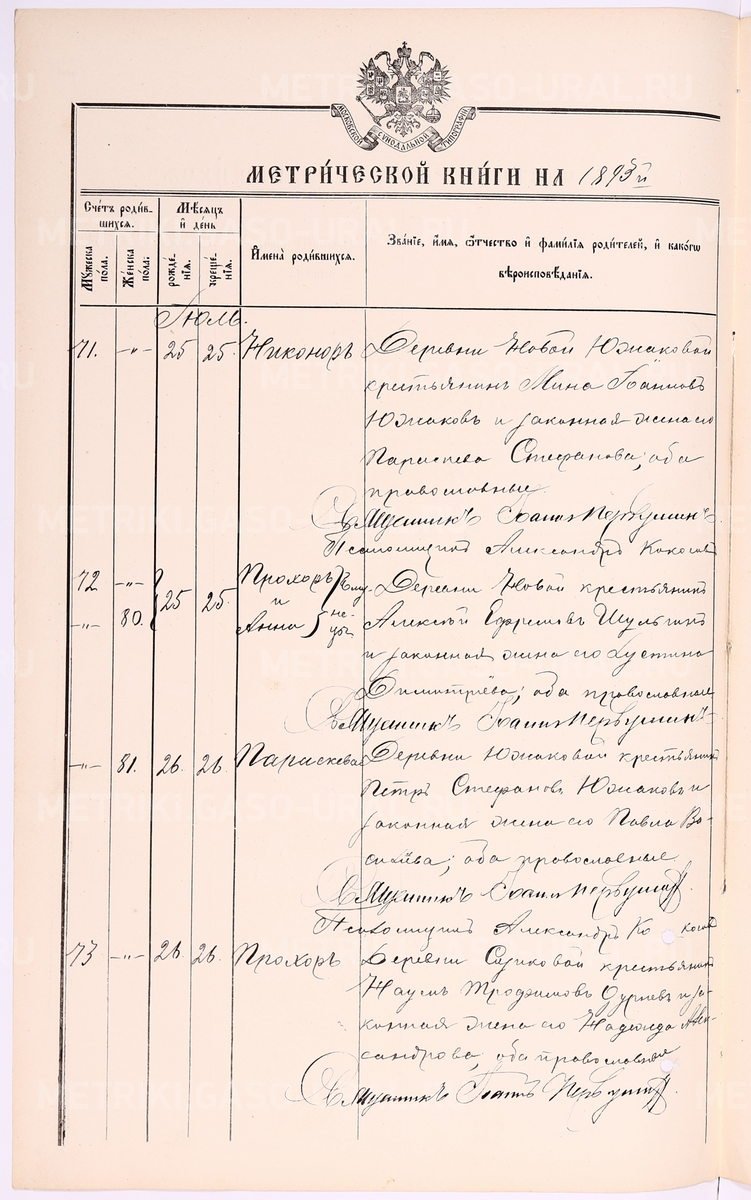 МОСКОВСКОЙ СѴНОДАЛЬНОЙ ТИПОГРАФІИ
МЕТРИ́ЧЕСКОЙ КНИ́ГИ НА 1893й
Счетъ роди́в-
шихся.
Мѣсяцъ
и день
Мꙋжеска
пола.
Женска
пола:
рожде-
нія.
креще-
нія.
Имена̀ роди́вшихся.
Зва́ніе, и́мя, ѻтчество и фами́лія роди́телей, и како́гѡ
вѣроисповѣ́данія.
Іюль.
71. -"- 25 25. Никоноръ Деревни Новой Южаковой
крестьянинъ Мина Іоанновъ
Южаковъ и законная жена его
Параскева Стефанова; оба
православные
Священникъ Іоаннъ Первушинъ
Псаломщикъ Александръ Кокосовъ
72 -"- 25 25. Прохоръ Деревни Новой крестьянинъ
-"- 80. и
Анна Алексѣй Ефремовъ Шульгинъ
и законная жена его Іустина
Димитріева; оба православные
Священникъ Іоаннъ Первушинъ
-"- 81. 26. 26. Параскева Деревни Южаковой крестьянинъ
Петръ Стефановъ Южаковъ и
законная жена его Павла Ва-
сильева; оба православные
Священникъ Іоаннъ Первушинъ
Псаломщикъ Александръ Кокосовъ
73 -"- 26. 26. Прохоръ Деревни Сизиковой крестьянинъ
Наумъ Трофимовъ и за-
конная жена его Надежда Алек-
сандрова, оба православные
Священникъ Іоаннъ Первушинъ.